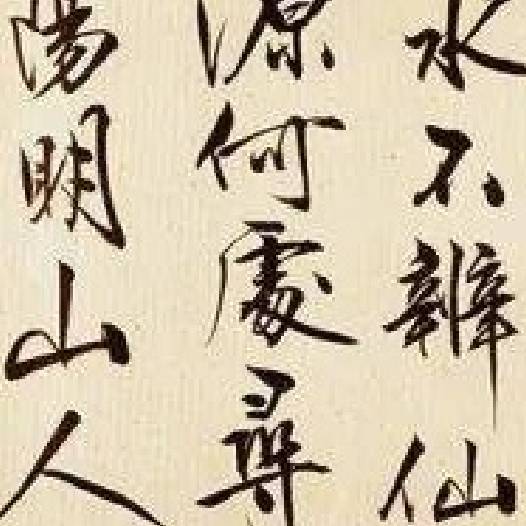 水不辨仙
源何處尋
陽明山人